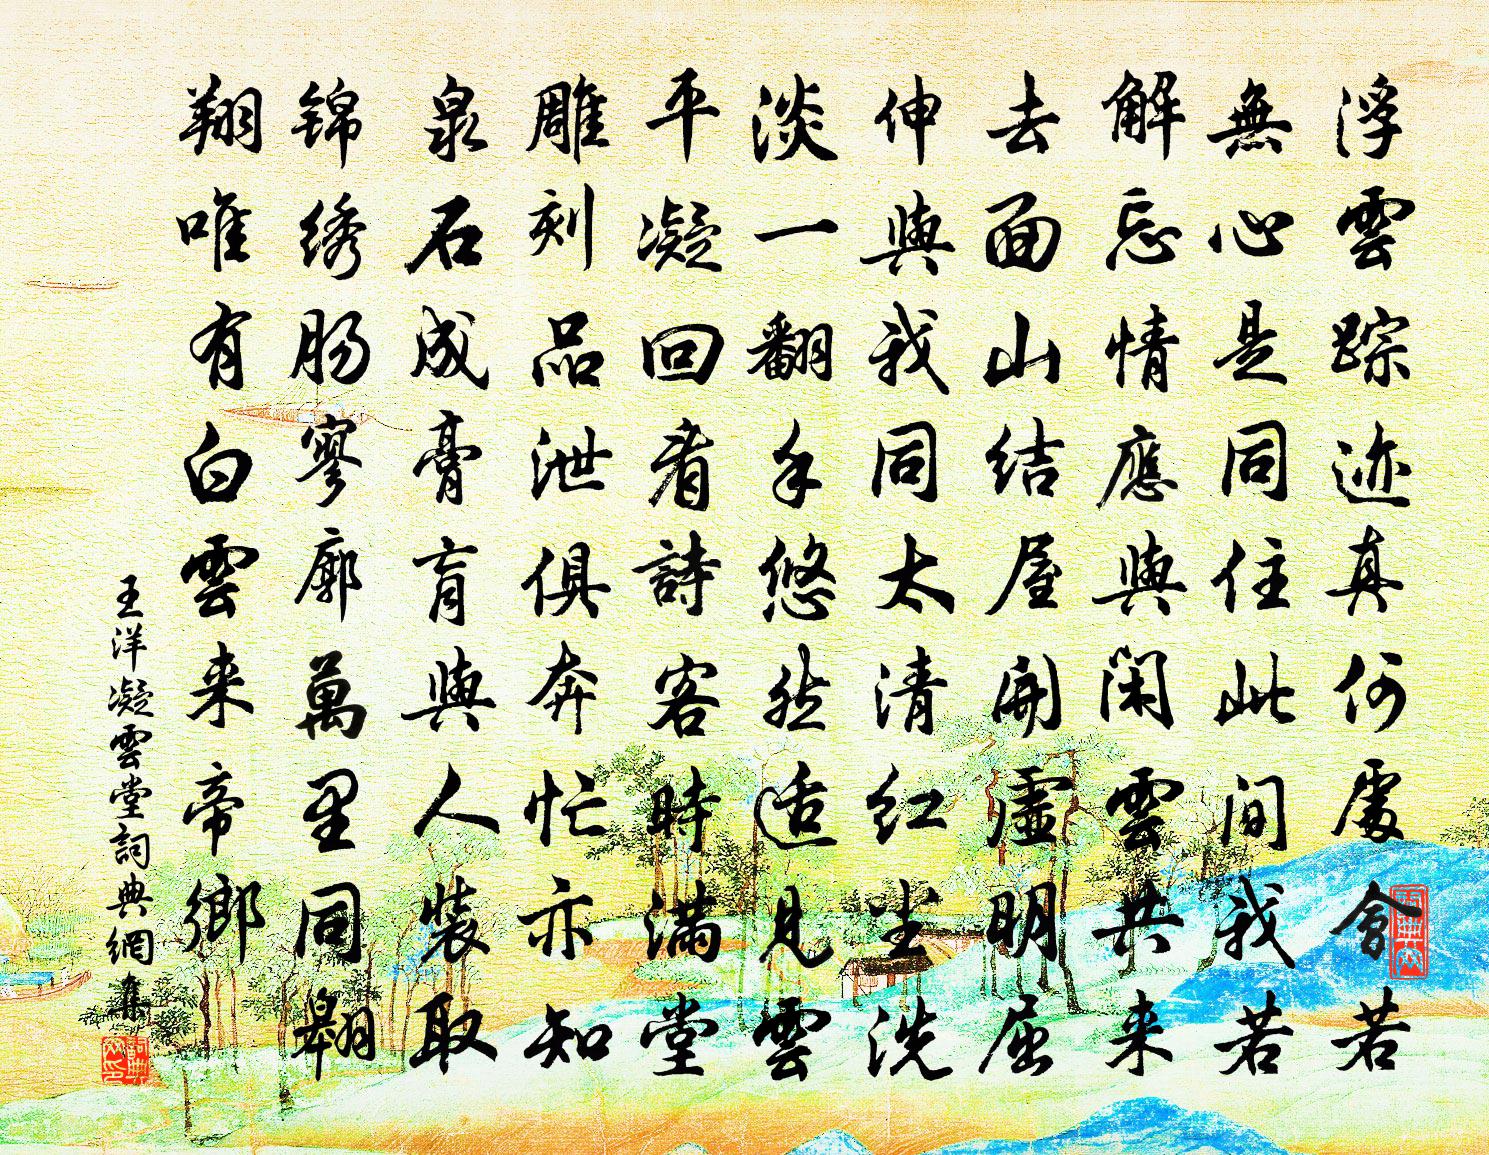 浮雲踪迹真何處會若
無心是同住此间我若
解忘情應與闲雲共来
去面山结屋開虛明屈
伸與我同太清紅尘洗
淡一翻手悠然适見雲
平凝回看詩客時滿堂
雕刻品泄俱奔忙亦知
泉石成膏肓與人裝取
锦绣肠寥廓萬里同翱
翔唯有白雲来帝鄉
王洋凝雲堂詞典網集